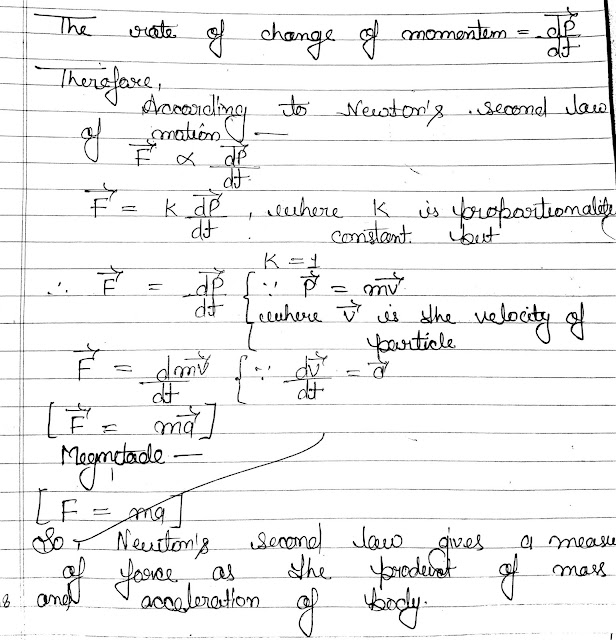 The rate of change of momentem = dP⃗/dt
Therefore,
According to Newton's second law
of motion —
F⃗ ∝ dP⃗/dt
F⃗ = K dP⃗/dt , where K is proportionality
constant. but
K = 1
∴ F⃗ = dP⃗/dt { ∵ P⃗ = mv⃗
where v⃗ is the velocity of
particle
F⃗ = dmv⃗/dt { ∵ dv⃗/dt = a⃗
[F⃗ = ma⃗]
Megnetude —
[F = ma]
So, Newton's second law gives a measure
of force as the product of mass
8 and acceleration of body.